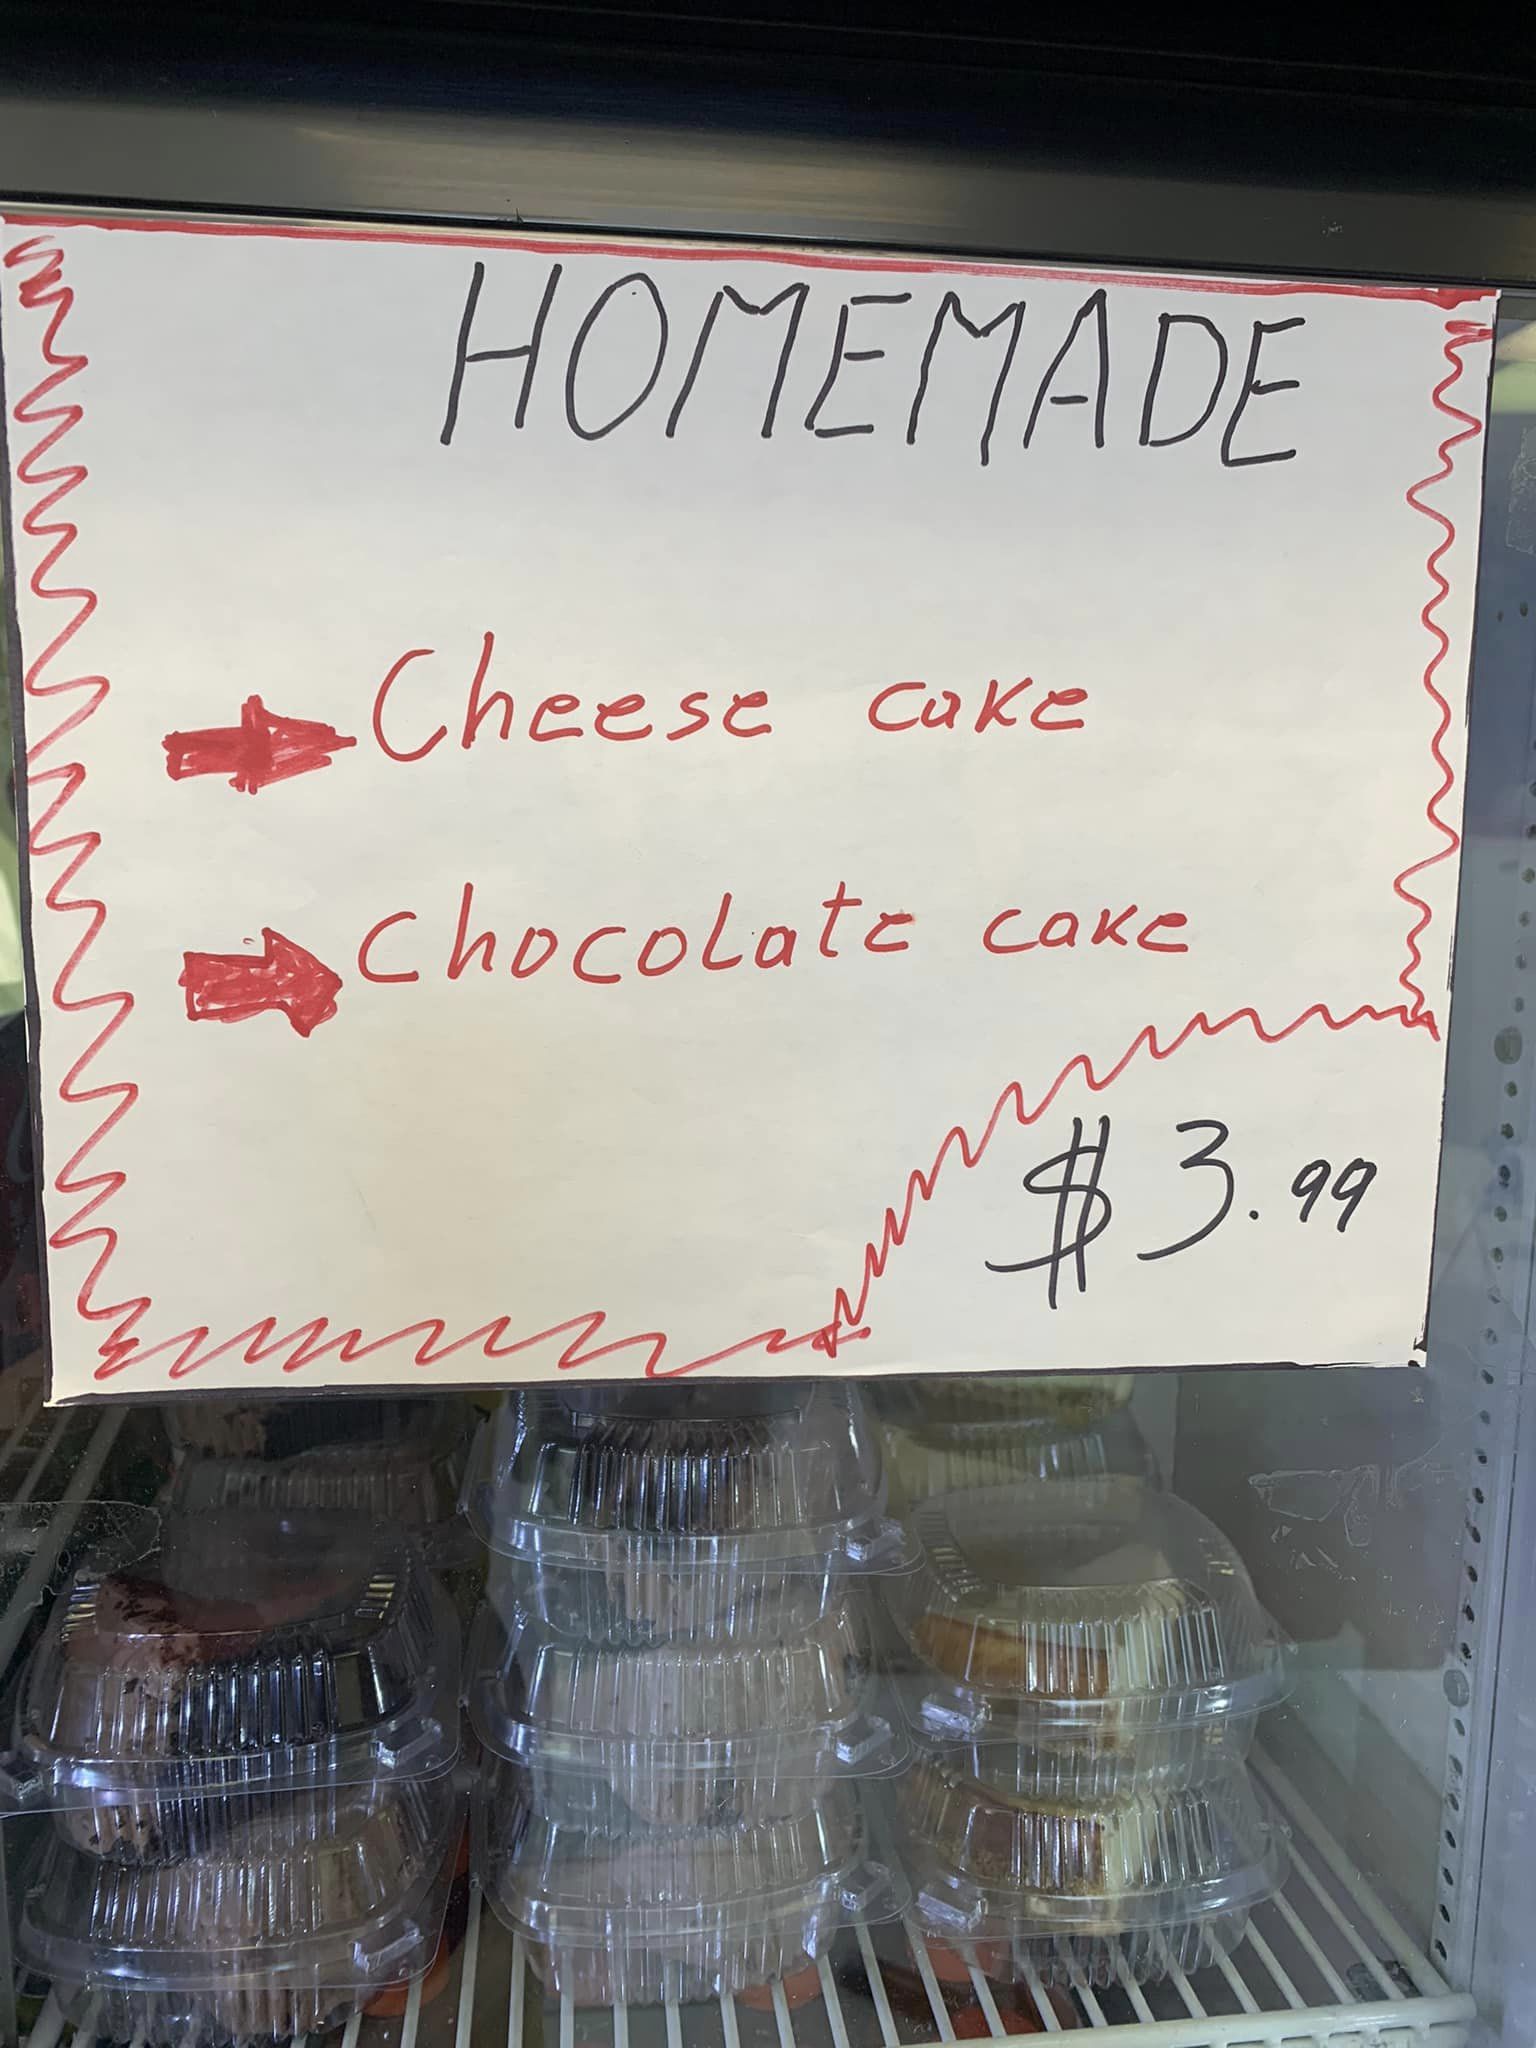 HOMEMADE
Cheese cake
Chocolate cake
$3.99